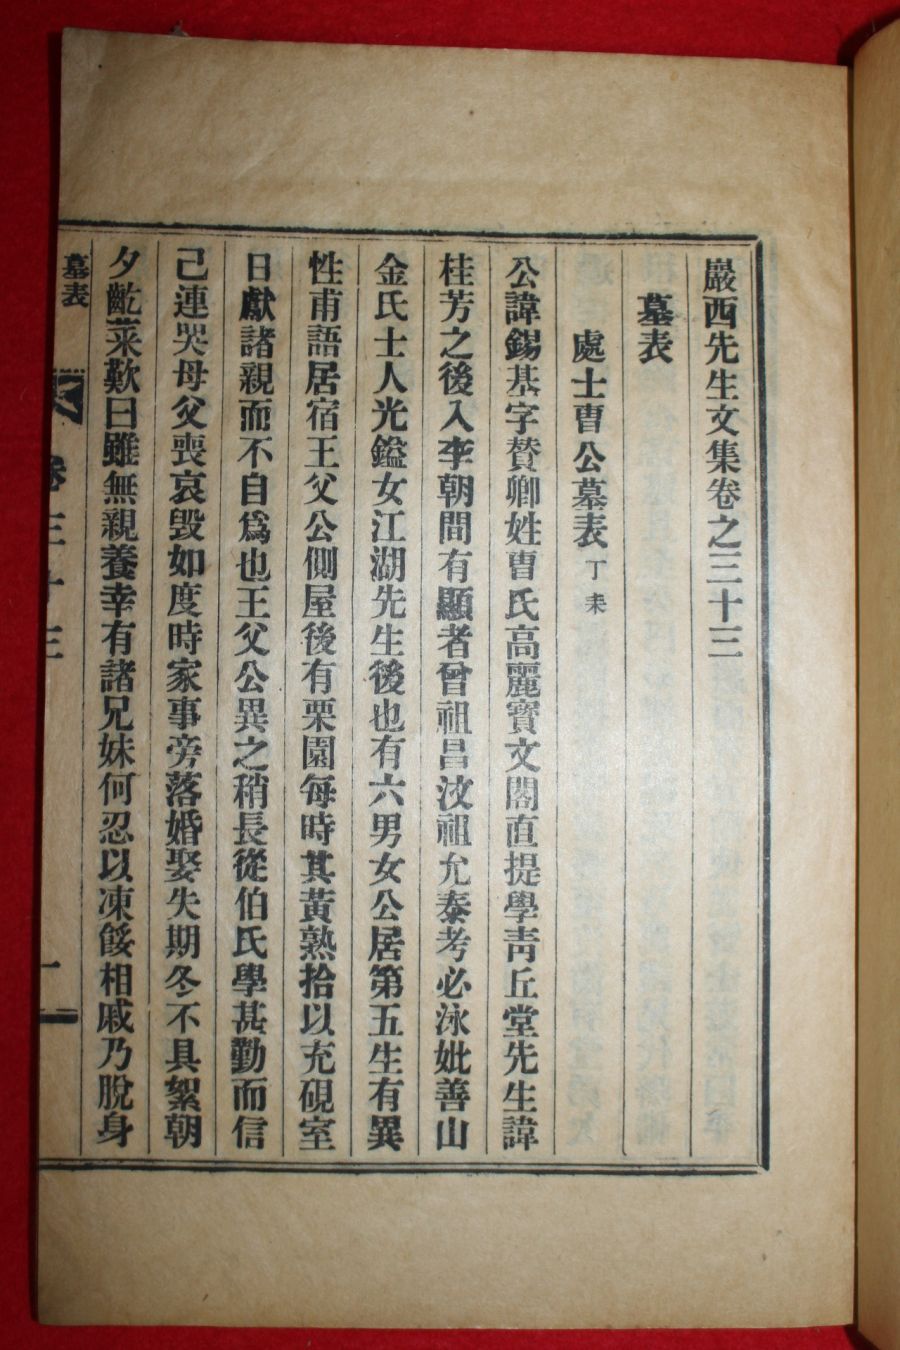 巖西先生文集卷之三十三
墓表
處士曺公墓表 丁未
公諱錫基字贊卿姓曺氏高麗寶文閣直提學靑丘堂先生諱
桂芳之後入李朝間有顯者曾祖昌汶祖允泰考必泳妣善山
金氏士人光鎰女江湖先生後也有六男女公居第五生有異
性甫語居宿王父公側屋後有栗園每時其黃熟拾以充硯室
日獻諸親而不自爲也王父公異之稍長從伯氏學甚勤而信
己連哭母父喪哀毁如度時家事旁落婚娶失期冬不具絮朝
夕齕菜歎曰雖無親養幸有諸兄妹何忍以凍餒相戚乃脫身
墓表
卷三十三
一